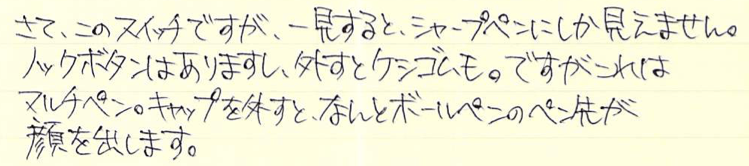 さて、このスイッチですが、一見すると、シャープペンにしか見えません。
ノックボタンはありますし、外すとケシゴムも。ですがこれは
マルチペン。キャップを外すと、なんとボールペンのペン先が
顔を出します。